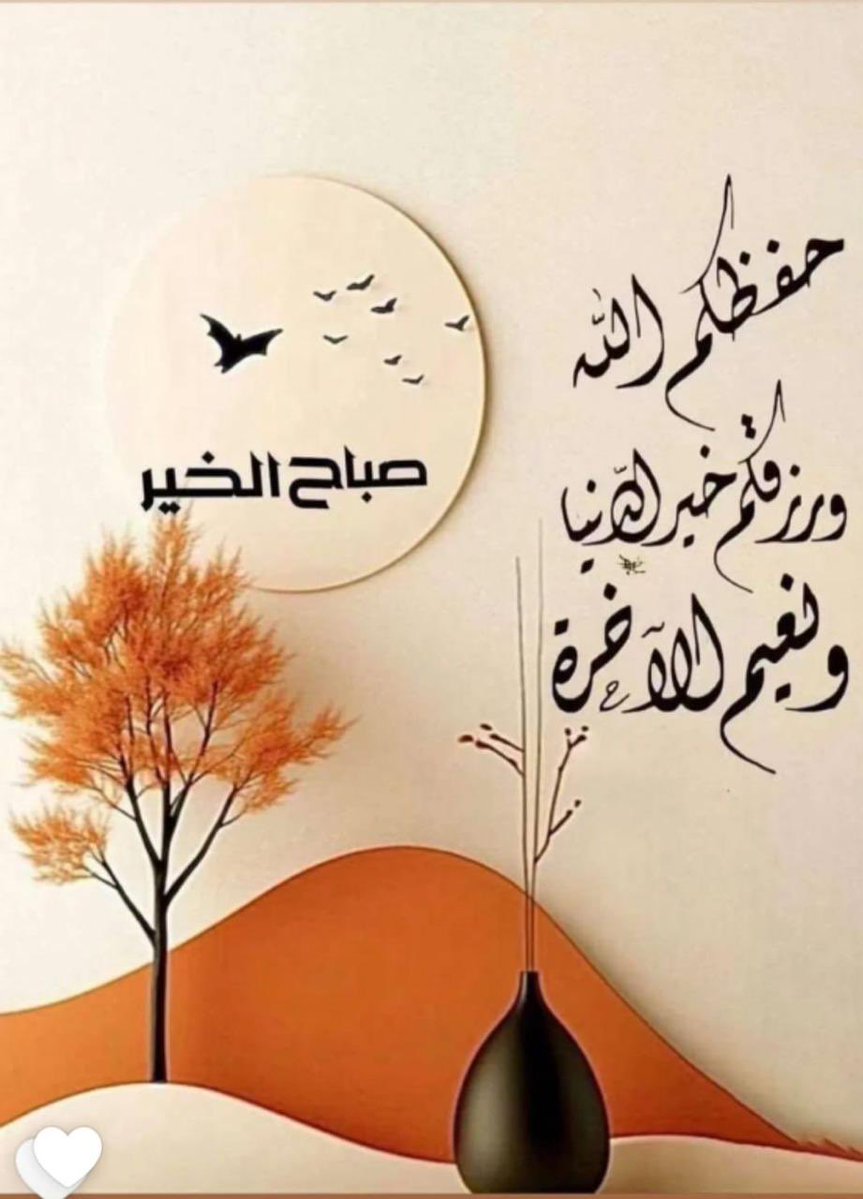 حفظكم الله
ورزقكم خير الدّنيا
ونعيم الآخرة
صباح الخير